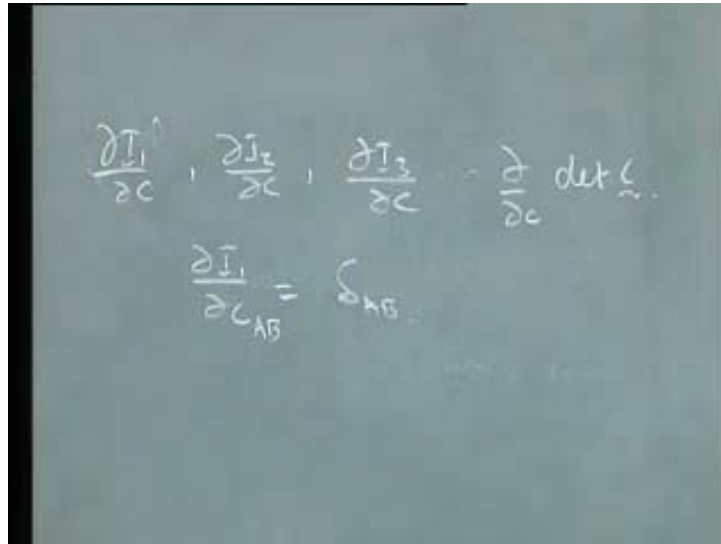 ∂I₁/∂C , ∂I₂/∂C , ∂I₃/∂C -- ∂/∂C det C̰.
∂I₁/∂C_AB = δ_AB.